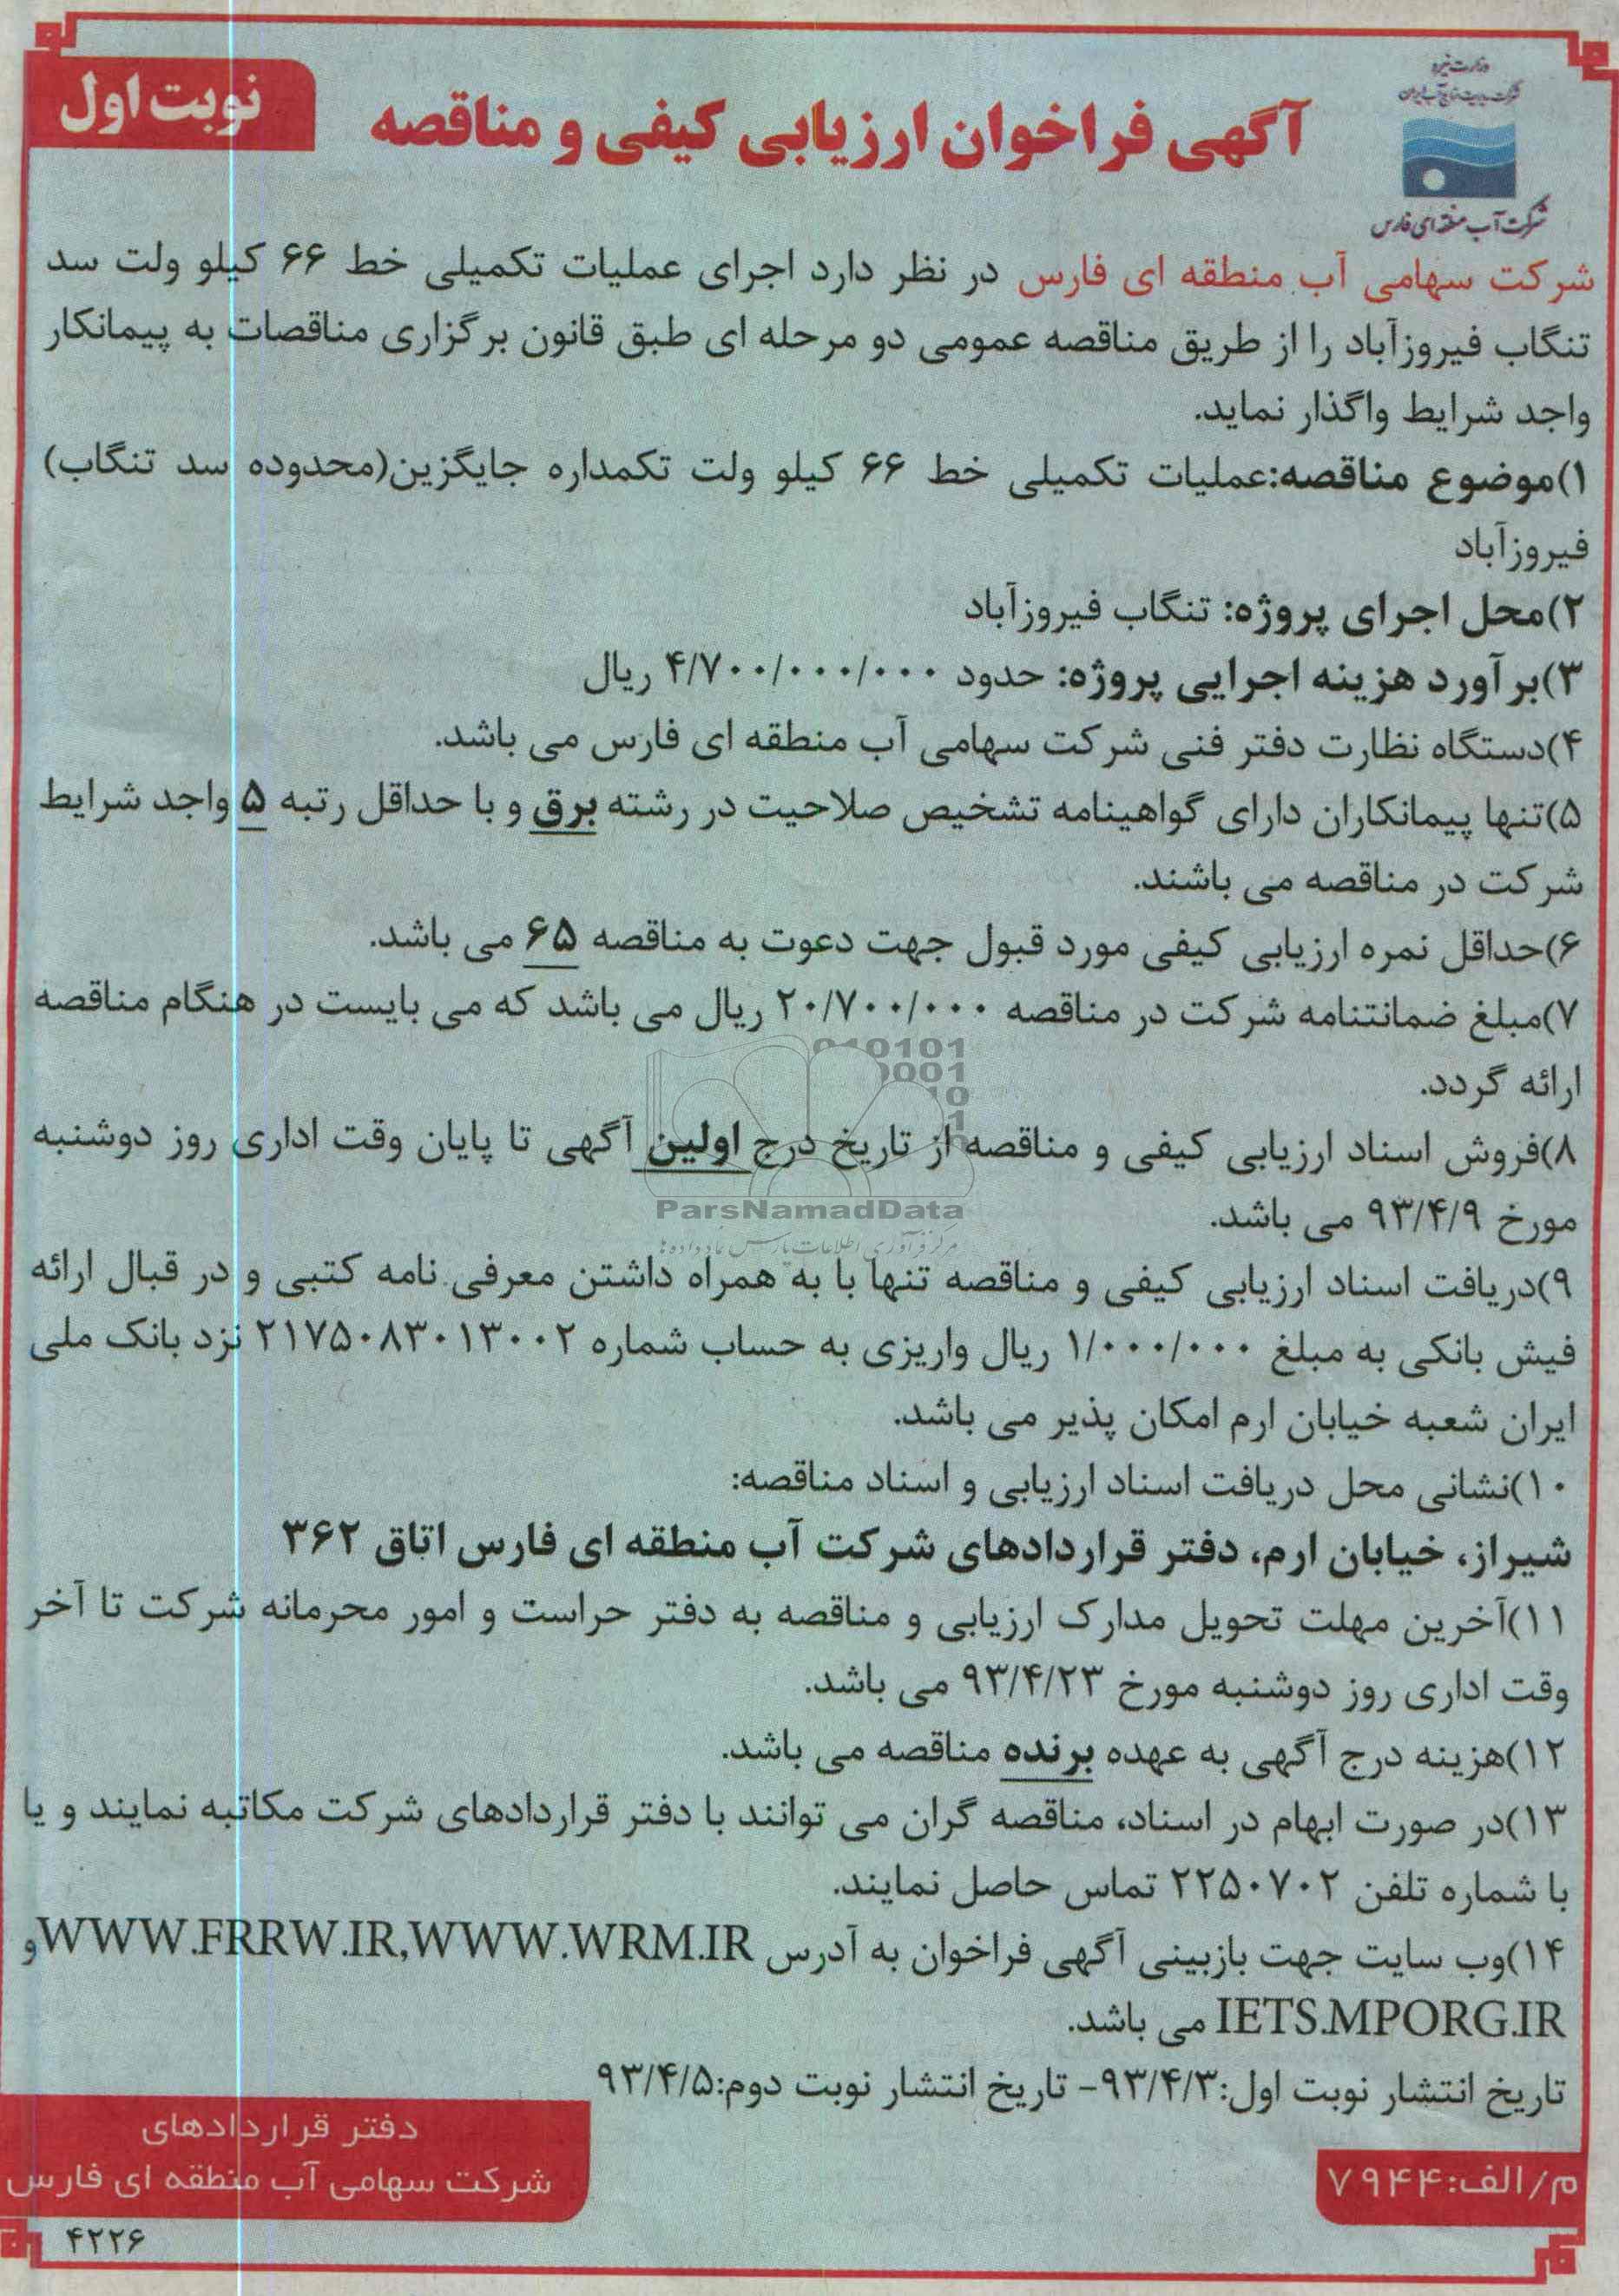 وزارت نیرو
شرکت مدیریت منابع آب ایران
شرکت آب منطقه‌ای فارس
نوبت اول
آگهی فراخوان ارزیابی کیفی و مناقصه
شرکت سهامی آب منطقه ای فارس در نظر دارد اجرای عملیات تکمیلی خط ۶۶ کیلو ولت سد
تنگاب فیروزآباد را از طریق مناقصه عمومی دو مرحله ای طبق قانون برگزاری مناقصات به پیمانکار
واجد شرایط واگذار نماید.
۱)موضوع مناقصه:عملیات تکمیلی خط ۶۶ کیلو ولت تکمداره جایگزین(محدوده سد تنگاب)
فیروزآباد
۲)محل اجرای پروژه: تنگاب فیروزآباد
۳)برآورد هزینه اجرایی پروژه: حدود ۴/۷۰۰/۰۰۰/۰۰۰ ریال
۴)دستگاه نظارت دفتر فنی شرکت سهامی آب منطقه ای فارس می باشد.
۵)تنها پیمانکاران دارای گواهینامه تشخیص صلاحیت در رشته برق و با حداقل رتبه ۵ واجد شرایط
شرکت در مناقصه می باشند.
۶)حداقل نمره ارزیابی کیفی مورد قبول جهت دعوت به مناقصه ۶۵ می باشد.
۷)مبلغ ضمانتنامه شرکت در مناقصه ۲۰/۷۰۰/۰۰۰ ریال می باشد که می بایست در هنگام مناقصه
ارائه گردد.
۸)فروش اسناد ارزیابی کیفی و مناقصه از تاریخ درج اولین آگهی تا پایان وقت اداری روز دوشنبه
مورخ ۹۳/۴/۹ می باشد.
ParsNamadData
مرکز فرآوری اطلاعات پارس نماد داده ها
۹)دریافت اسناد ارزیابی کیفی و مناقصه تنها با به همراه داشتن معرفی نامه کتبی و در قبال ارائه
فیش بانکی به مبلغ ۱/۰۰۰/۰۰۰ ریال واریزی به حساب شماره ۲۱۷۵۰۸۳۰۱۳۰۰۲ نزد بانک ملی
ایران شعبه خیابان ارم امکان پذیر می باشد.
۱۰)نشانی محل دریافت اسناد ارزیابی و اسناد مناقصه:
شیراز، خیابان ارم، دفتر قراردادهای شرکت آب منطقه ای فارس اتاق ۳۶۲
۱۱)آخرین مهلت تحویل مدارک ارزیابی و مناقصه به دفتر حراست و امور محرمانه شرکت تا آخر
وقت اداری روز دوشنبه مورخ ۹۳/۴/۲۳ می باشد.
۱۲)هزینه درج آگهی به عهده برنده مناقصه می باشد.
۱۳)در صورت ابهام در اسناد، مناقصه گران می توانند با دفتر قراردادهای شرکت مکاتبه نمایند و یا
با شماره تلفن ۲۲۵۰۷۰۲ تماس حاصل نمایند.
۱۴)وب سایت جهت بازبینی آگهی فراخوان به آدرس WWW.FRRW.IR,WWW.WRM.IR و
IETS.MPORG.IR می باشد.
تاریخ انتشار نوبت اول:۹۳/۴/۳- تاریخ انتشار نوبت دوم:۹۳/۴/۵
م/الف:۷۹۴۴
دفتر قراردادهای
شرکت سهامی آب منطقه ای فارس
۴۲۲۶